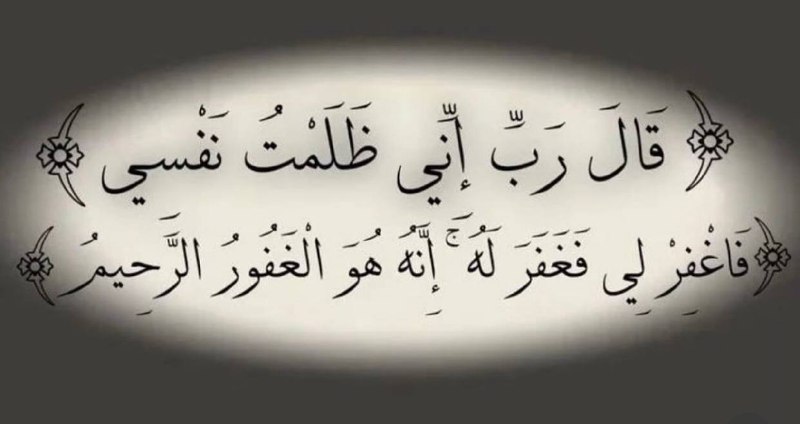 ﴿ قَالَ رَبِّ إِنِّي ظَلَمْتُ نَفْسِي ﴾
﴿ فَاغْفِرْ لِي فَغَفَرَ لَهُ ۚ إِنَّهُ هُوَ الْغَفُورُ الرَّحِيمُ ﴾